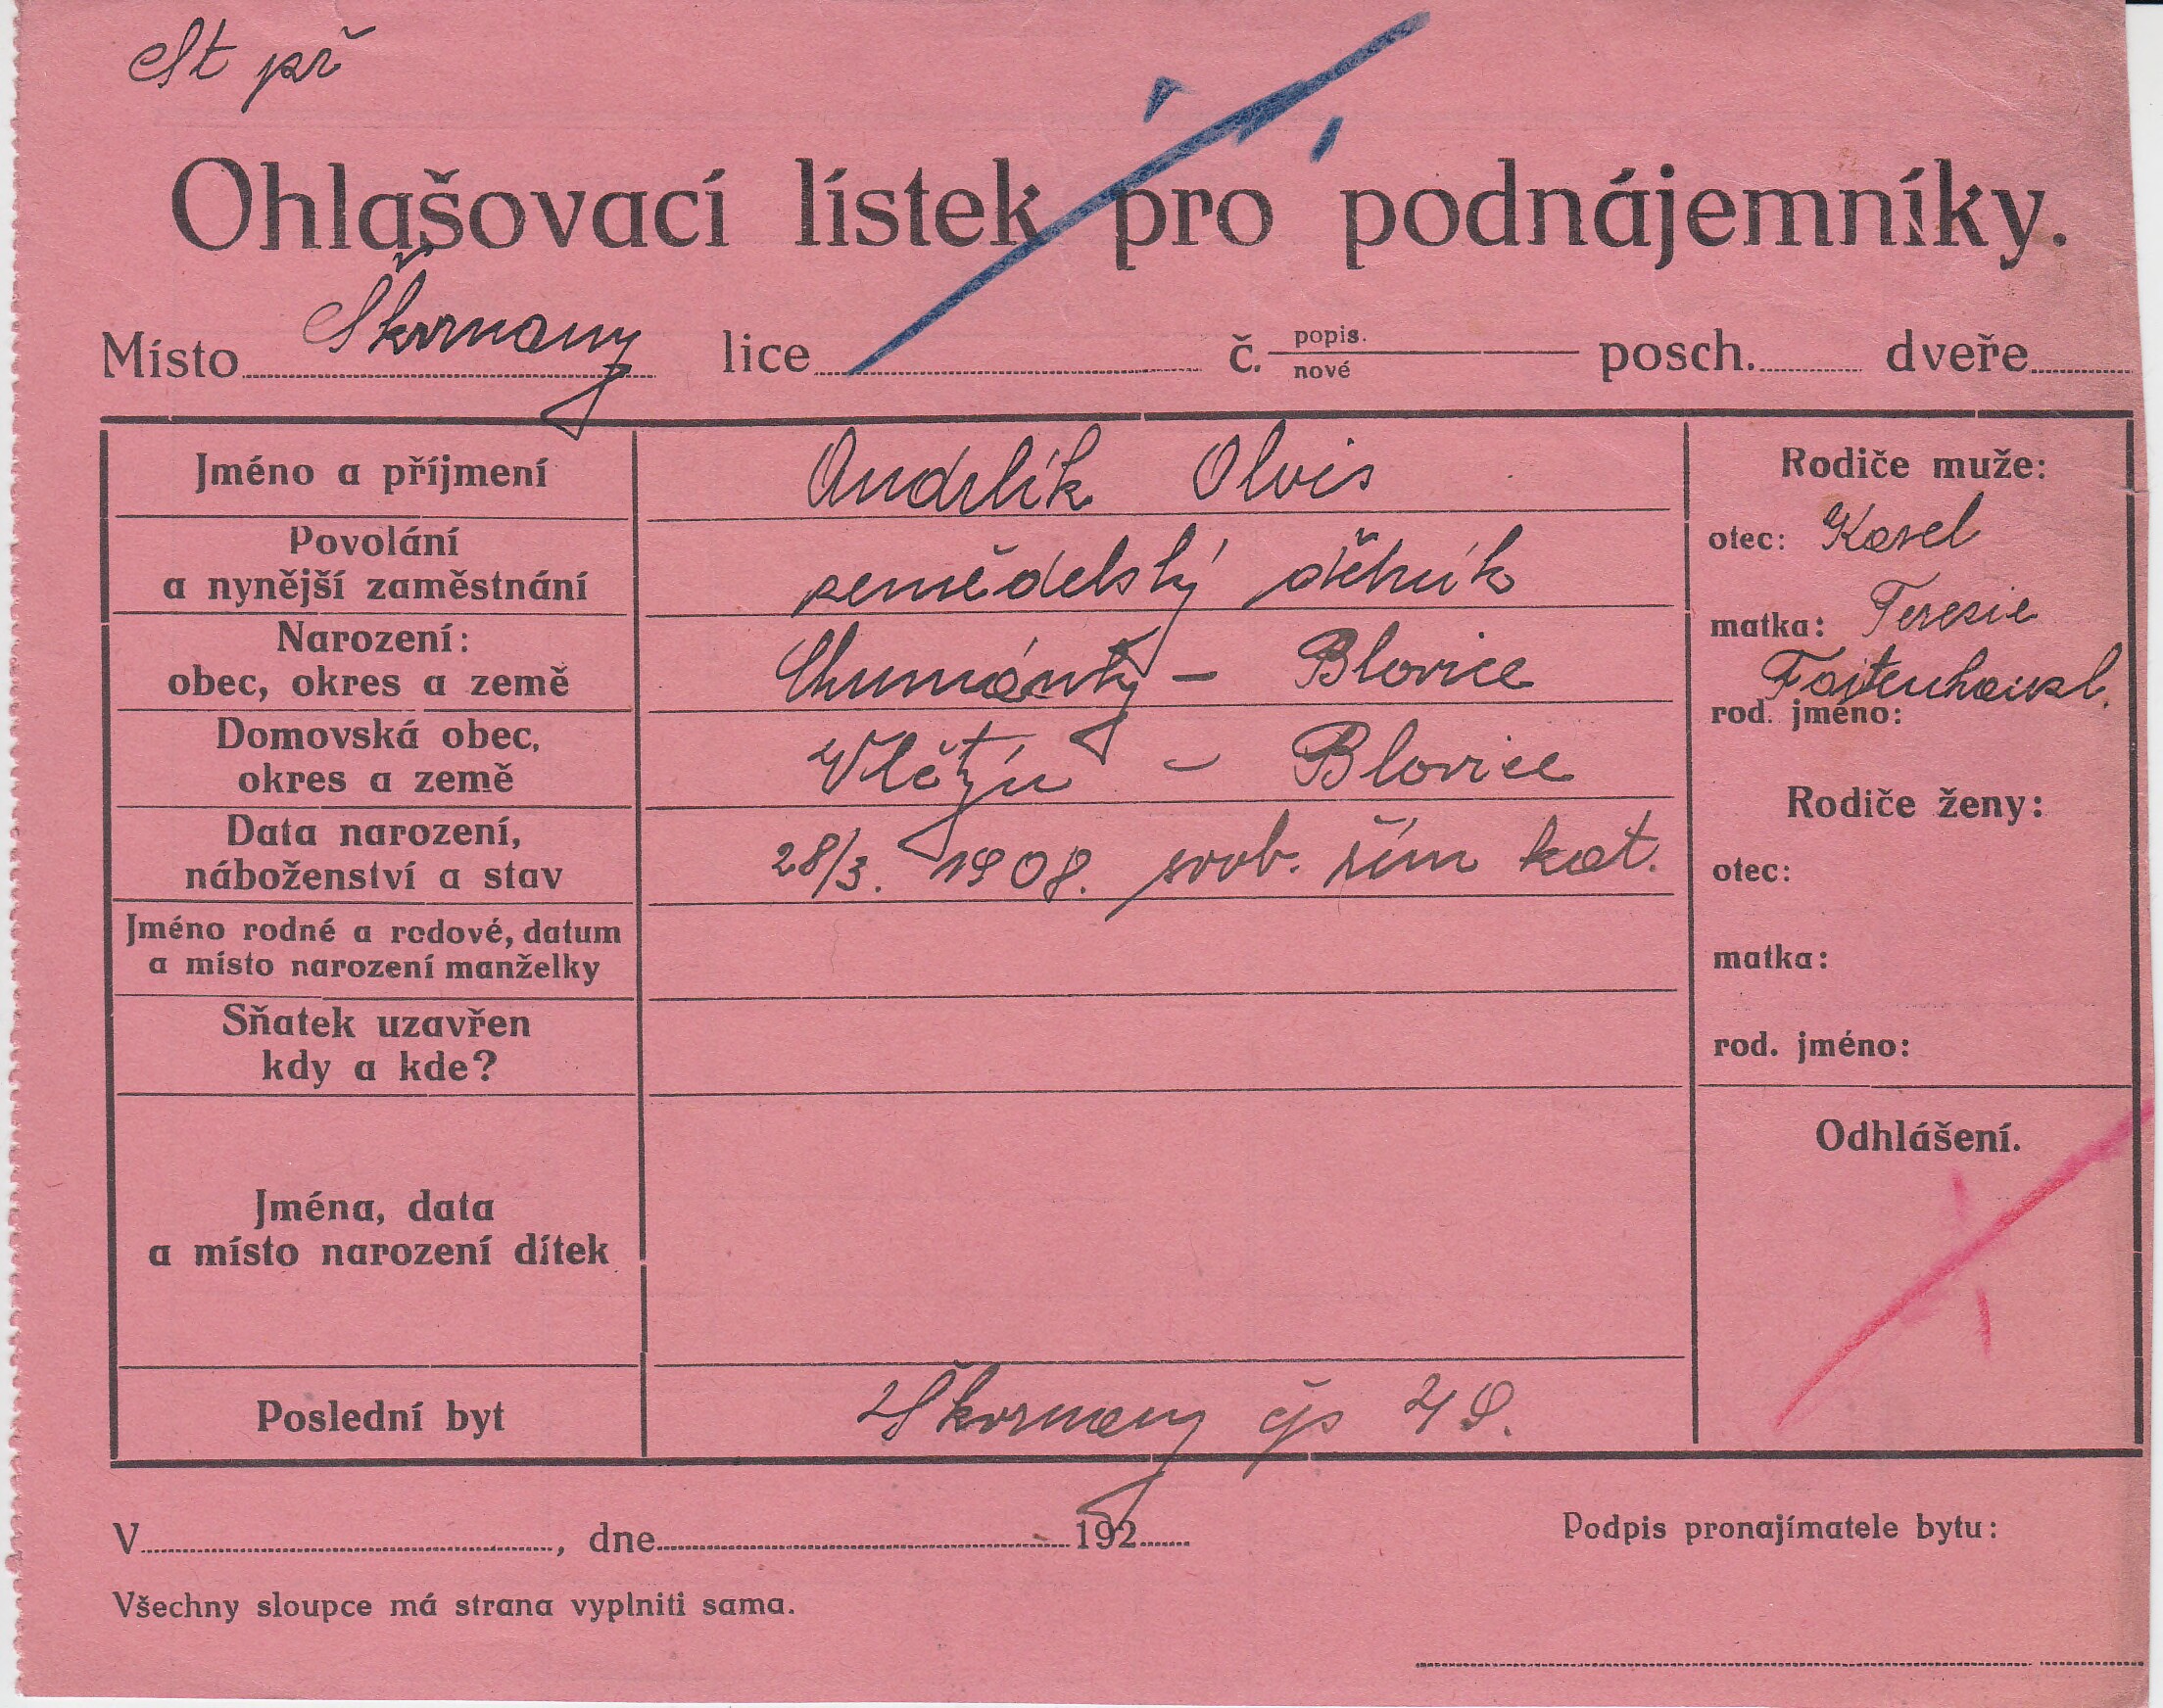 St př
Ohlašovací lístek pro podnájemníky.
Místo Škvrňany lice č. popis. nové posch. dveře
Jméno a příjmení Andrlík Olvis
Rodiče muže:
Povolání
a nynější zaměstnání zemědelský dělník
otec: Karel
Narození:
obec, okres a země Chumánky – Blovice
matka: Terezie
rod. jméno:
Domovská obec,
okres a země Vlčtýn – Blovice
Rodiče ženy:
Data narození,
náboženství a stav 28/3. 1908. svob. řím kat.
otec:
Jméno rodné a rodové, datum
a místo narození manželky
matka:
Sňatek uzavřen
kdy a kde?
rod. jméno:
Odhlášení.
Jména, data
a místo narození dítek
Poslední byt Škvrňany čp
V , dne 192
Podpis pronajímatele bytu:
Všechny sloupce má strana vyplniti sama.